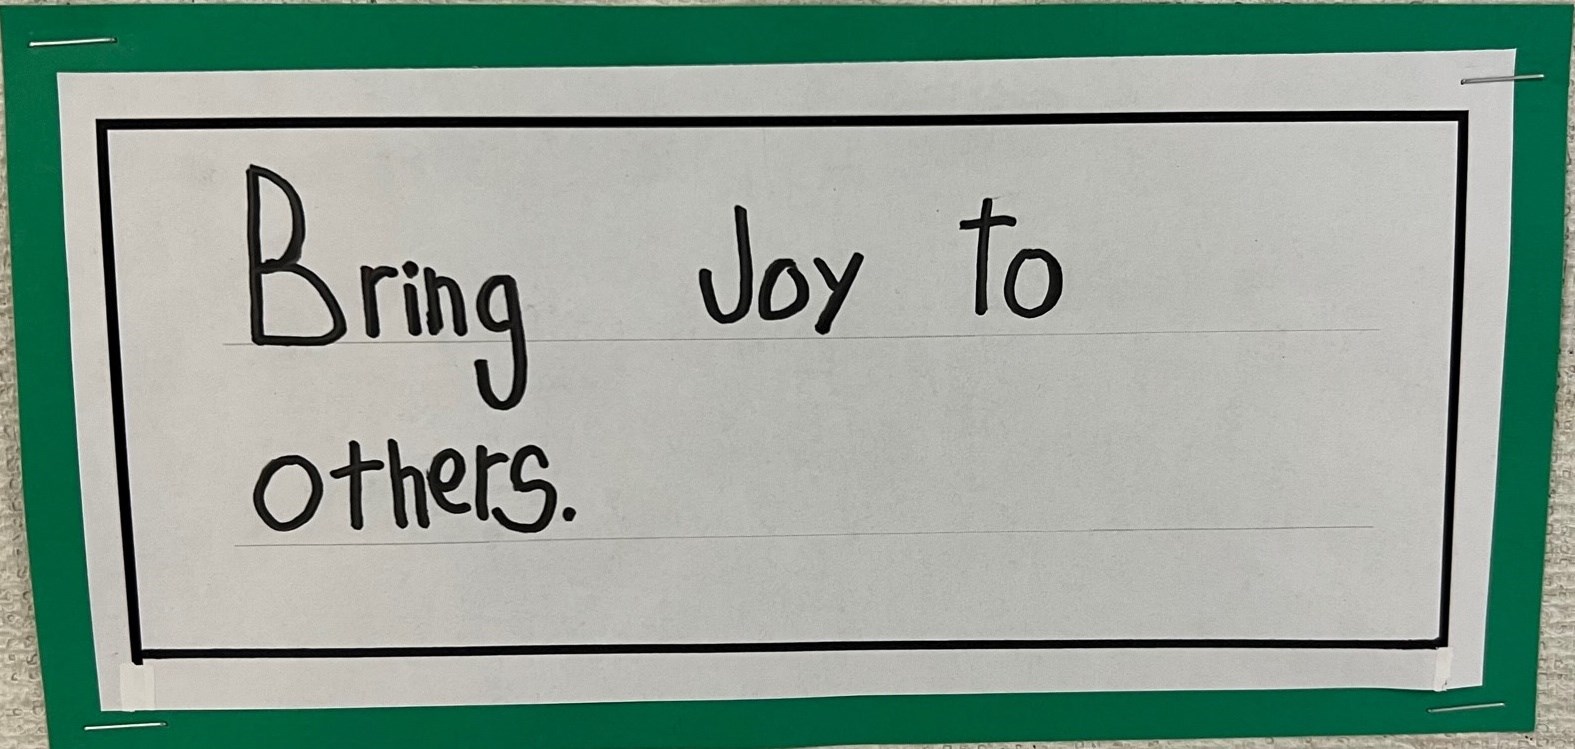 Bring Joy to
others.